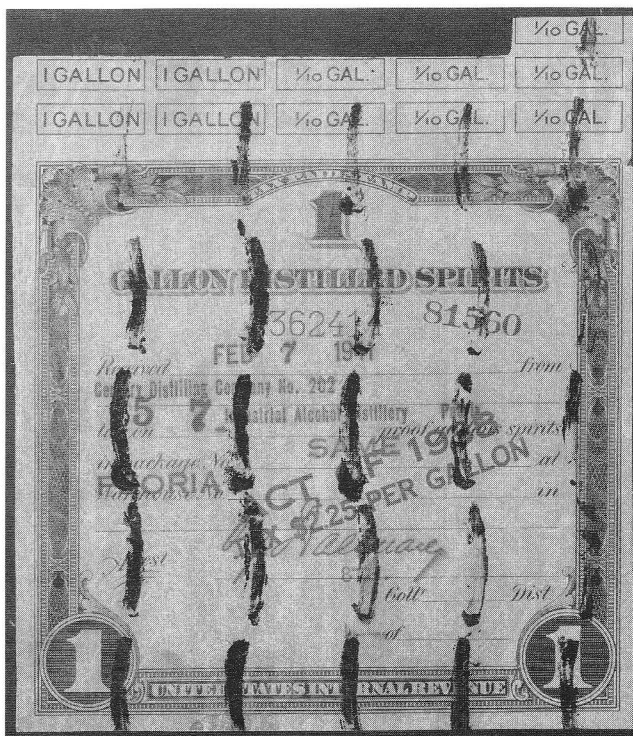 1/10 GAL.
1 GALLON 1 GALLON 1/10 GAL. 1/10 GAL. 1/10 GAL.
1 GALLON 1 GALLON 1/10 GAL. 1/10 GAL. 1/10 GAL.
TAX PAID STAMP
1
GALLON DISTILLED SPIRITS
362414 81560
FEB 7
Received from
Century Distilling Company No. 202
5 7 Industrial Alcohol Distillery
proof gallons spirits
SAME
in package No. at
PEORIA Warehouse No. in
ACT OF 1938
TAX $2.25 PER GALLON
Attest
Coll. Dist.
of
1 UNITED STATES INTERNAL REVENUE 1